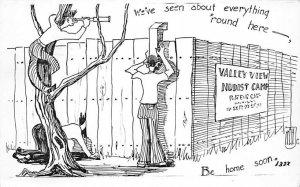 We've seen about everything
'round here
VALLEY VIEW
NUDIST CAMP
Be home soon.